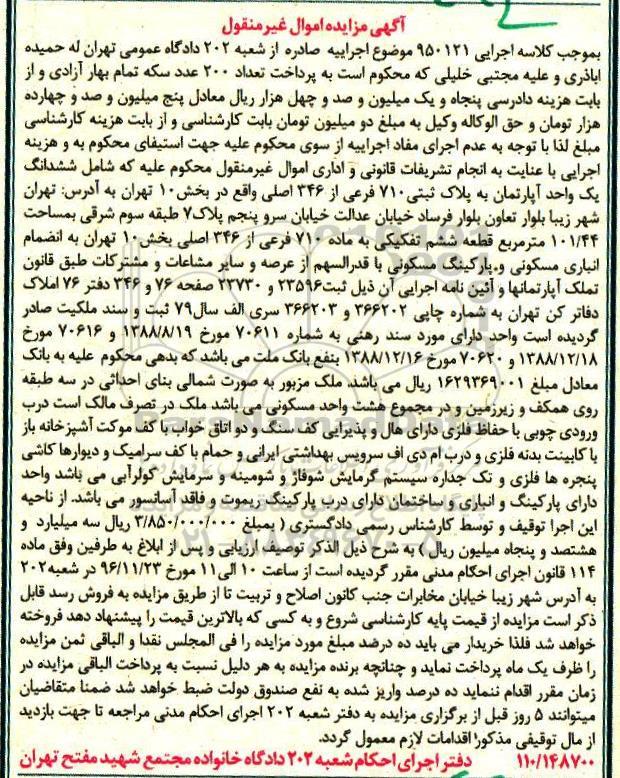 آگهی مزایده اموال غیرمنقول
بموجب کلاسه اجرایی ۹۵۰۱۲۱ موضوع اجراییه صادره از شعبه ۲۰۲ دادگاه عمومی تهران له حمیده
اباذری و علیه مجتبی خلیلی که محکوم است به پرداخت تعداد ۲۰۰ عدد سکه تمام بهار آزادی و از
بابت هزینه دادرسی پنجاه و یک میلیون و صد و چهل هزار ریال معادل پنج میلیون و صد و چهارده
هزار تومان و حق الوکاله وکیل به مبلغ دو میلیون تومان بابت کارشناسی و از بابت هزینه کارشناسی
مبلغ لذا با توجه به عدم اجرای مفاد اجراییه از سوی محکوم علیه جهت استیفای محکوم به و هزینه
اجرایی با عنایت به انجام تشریفات قانونی و اداری اموال غیرمنقول محکوم علیه که شامل ششدانگ
یک واحد آپارتمان به پلاک ثبتی ۷۱۰ فرعی از ۳۴۶ اصلی واقع در بخش ۱۰ تهران به آدرس: تهران
شهر زیبا بلوار تعاون بلوار فرساد خیابان عدالت خیابان سرو پنجم پلاک ۷ طبقه سوم شرقی بمساحت
۱۰۱/۴۴ مترمربع قطعه ششم تفکیکی به ماده ۷۱۰ فرعی از ۳۴۶ اصلی بخش ۱۰ تهران به انضمام
انباری مسکونی و پارکینگ مسکونی با قدرالسهم از عرصه و سایر مشاعات و مشترکات طبق قانون
تملک آپارتمانها و آئین نامه اجرایی آن ذیل ثبت ۲۳۵۹۶ و ۲۳۷۳۰ صفحه ۷۶ و ۳۴۶ دفتر ۷۶ املاک
دفاتر کن تهران به شماره چاپی ۳۶۶۲۰۲ و ۳۶۶۲۰۳ سری الف سال ۷۹ ثبت و سند ملکیت صادر
گردیده است واحد دارای مورد سند رهنی به شماره ۷۰۶۱۱ مورخ ۱۳۸۸/۸/۱۹ و ۷۰۶۱۶ مورخ
۱۳۸۸/۱۲/۱۸ و ۷۰۶۲۰ مورخ ۱۳۸۸/۱۲/۱۶ بنفع بانک ملت می باشد که بدهی محکوم علیه به بانک
معادل مبلغ ۱۶۲۹۳۶۹۰۰۱ ریال می باشد. ملک مزبور به صورت شمالی بنای احداثی در سه طبقه
روی همکف و زیرزمین و در مجموع هشت واحد مسکونی می باشد ملک در تصرف مالک است درب
ورودی چوبی با حفاظ فلزی دارای هال و پذیرایی کف سنگ و دو اتاق خواب با کف موکت آشپزخانه باز
با کابینت بدنه فلزی و درب ام دی اف سرویس بهداشتی ایرانی و حمام با کف سرامیک و دیوارها کاشی
پنجره ها فلزی و تک جداره سیستم گرمایش شوفاژ و شومینه و سرمایش کولرآبی می باشد واحد
دارای پارکینگ و انباری و ساختمان دارای درب پارکینگ ریموت و فاقد آسانسور می باشد. از ناحیه
این اجرا توقیف و توسط کارشناس رسمی دادگستری ( بمبلغ ۳/۸۵۰/۰۰۰/۰۰۰ ریال سه میلیارد و
هشتصد و پنجاه میلیون ریال ) به شرح ذیل الذکر توصیف ارزیابی و پس از ابلاغ به طرفین وفق ماده
۱۱۴ قانون اجرای احکام مدنی مقرر گردیده است از ساعت ۱۰ الی ۱۱ مورخ ۹۶/۱۱/۲۳ در شعبه ۲۰۲
به آدرس شهر زیبا خیابان مخابرات جنب کانون اصلاح و تربیت تا از طریق مزایده به فروش رسد قابل
ذکر است مزایده از قیمت پایه کارشناسی شروع و به کسی که بالاترین قیمت را پیشنهاد دهد فروخته
خواهد شد فلذا خریدار می باید ده درصد مبلغ مورد مزایده را فی المجلس نقدا و الباقی ثمن مزایده
را ظرف یک ماه پرداخت نماید و چنانچه برنده مزایده به هر دلیل نسبت به پرداخت الباقی مزایده در
زمان مقرر اقدام ننماید ده درصد واریز شده به نفع صندوق دولت ضبط خواهد شد ضمنا متقاضیان
میتوانند ۵ روز قبل از برگزاری مزایده به دفتر شعبه ۲۰۲ اجرای احکام مدنی مراجعه تا جهت بازدید
از مال توقیفی مذکور اقدامات لازم معمول گردد.
۱۱۰/۱۴۸۷۰۰ دفتر اجرای احکام شعبه ۲۰۲ دادگاه خانواده مجتمع شهید مفتح تهران